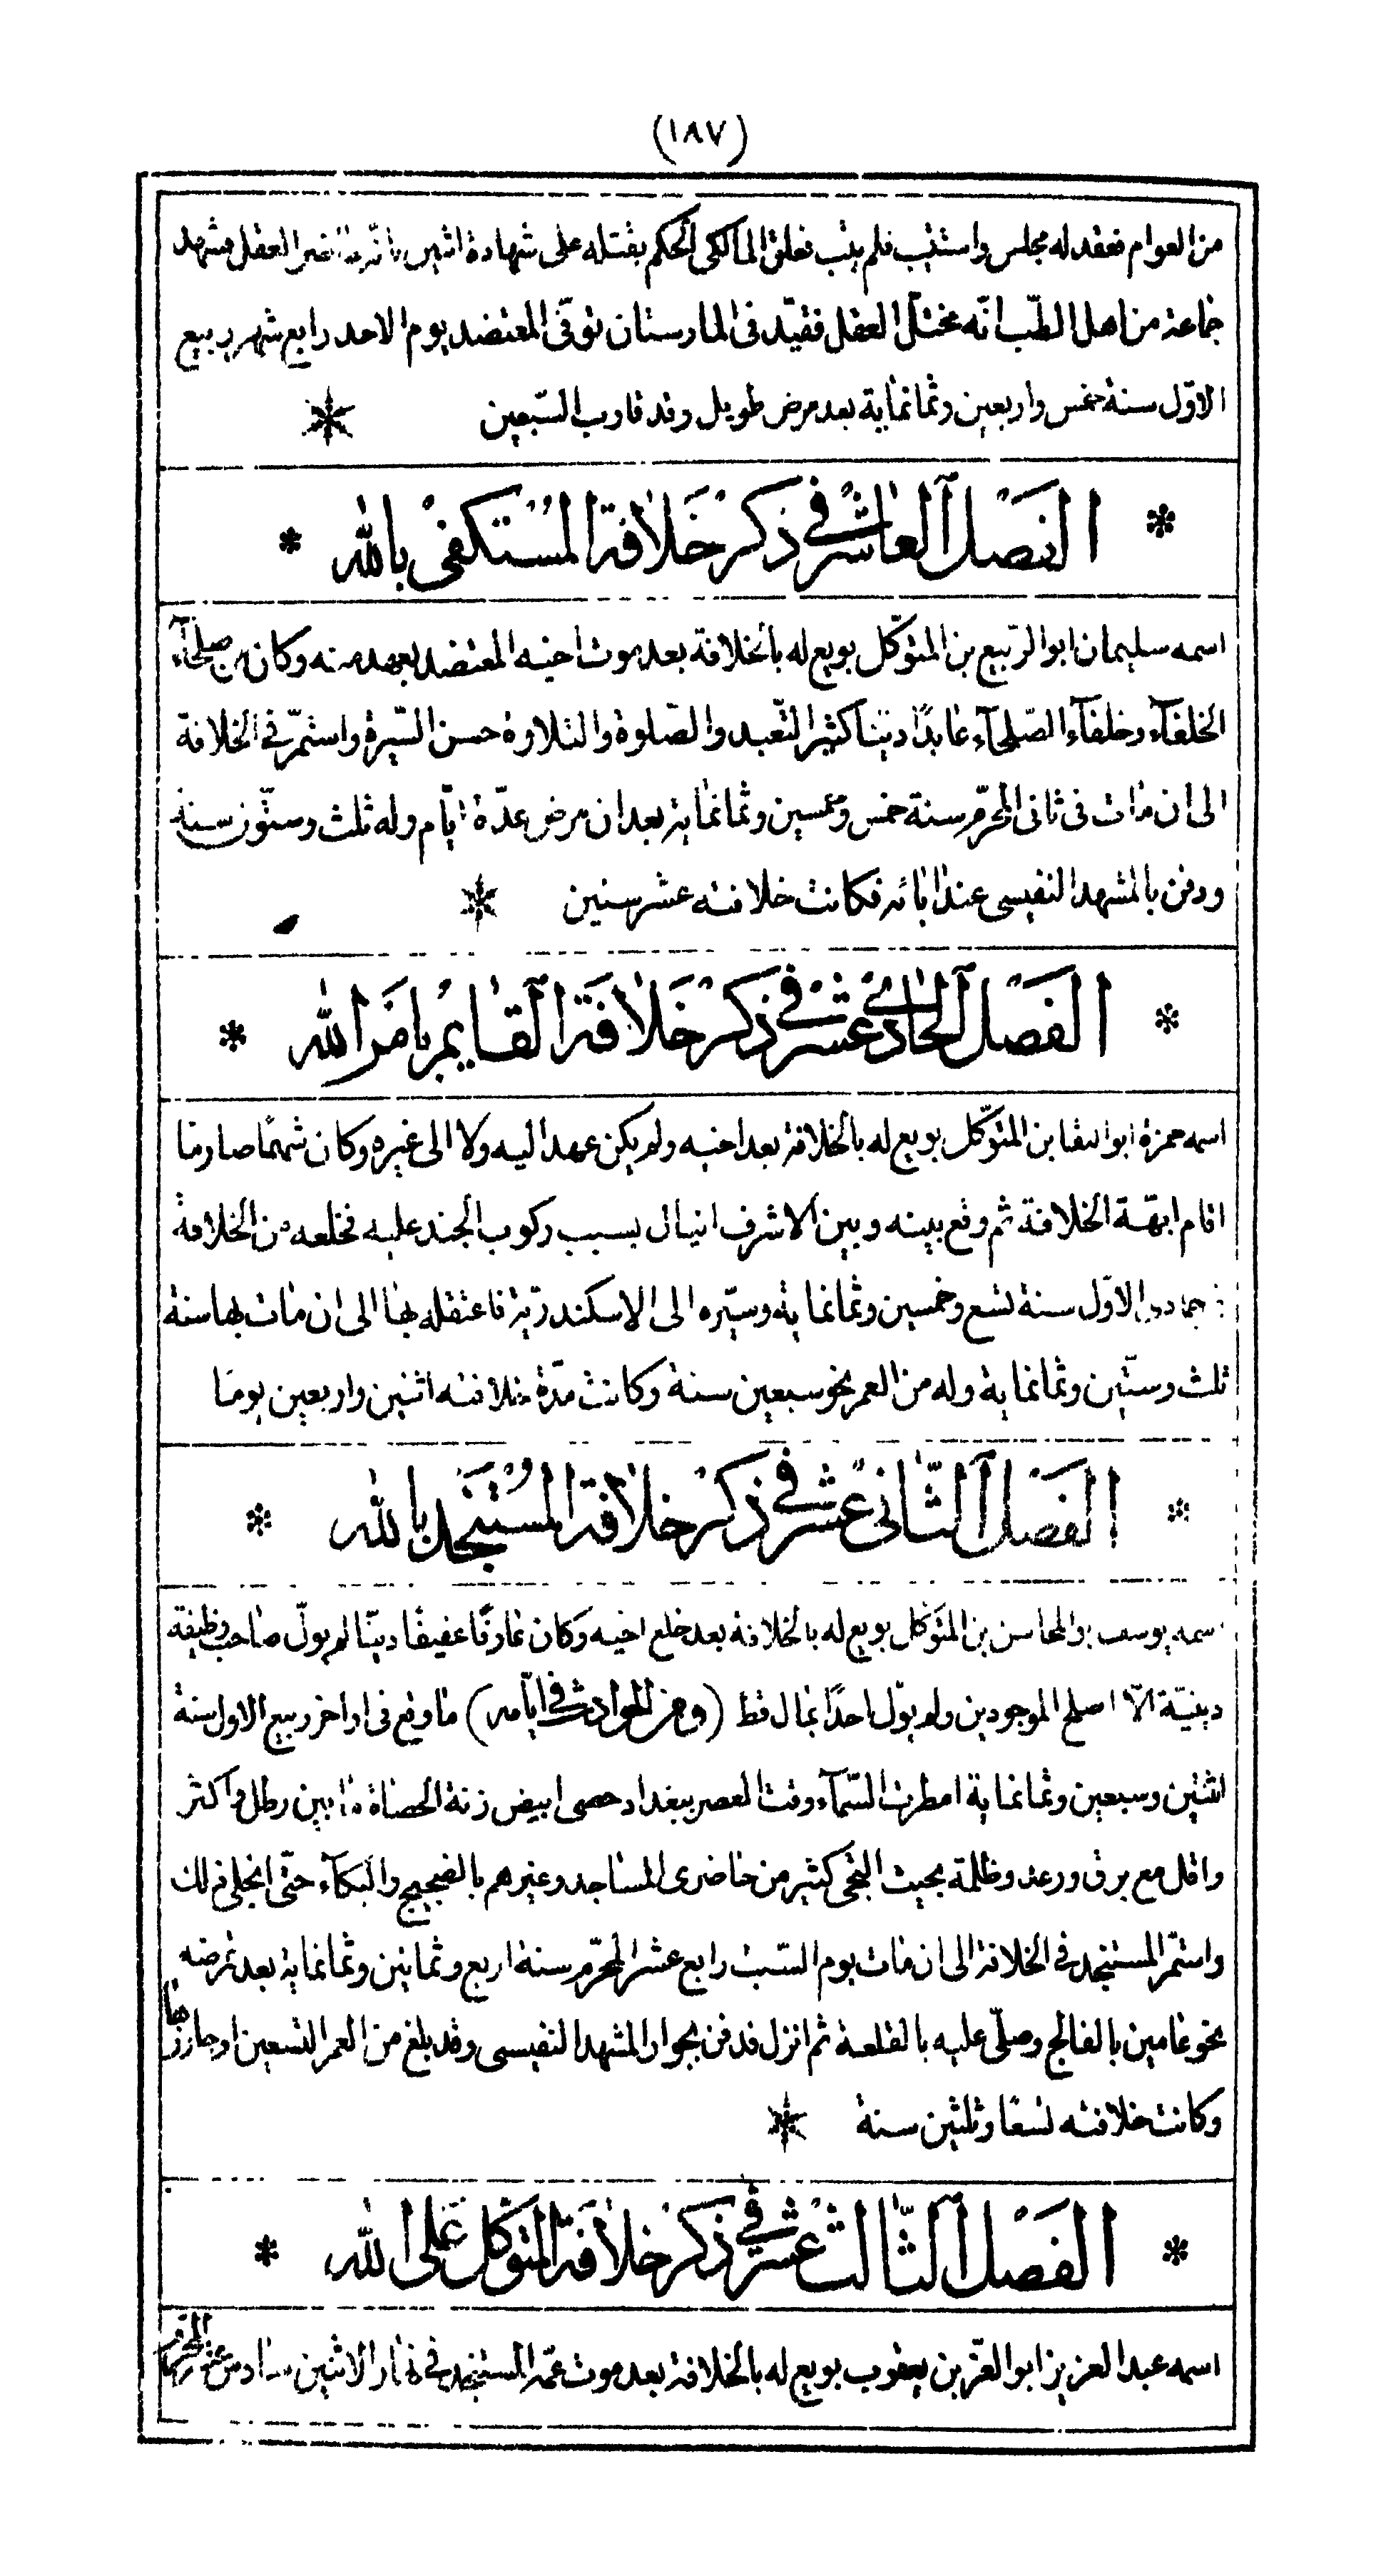 (١٨٧)
من العوام فعقد له مجلس واستتيب فلم يتب فعلق المالكى الحكم بقتله على شهادة اثنين العقل فشهد
جماعة من اهل الطّب انّه مختلّ العقل فقيّد فى المارستان توفّى المعتضد يوم الاحد رابع شهر ربيع
الاوّل سنة خمس واربعين وثمانماية بعد مرض طويل وقد قارب السّبعين *
* الفصل العاشر فى ذكر خلافة المستكفى بالله *
اسمه سليمان ابو الرّبيع بن المتوكّل بويع له بالخلافة بعد موت اخيه المعتضد بعهد منه وكان من صلحآء
الخلفآء وخلفآء الصّلحآء عابدًا ديّنا كثير التّعبد والصّلوة والتلاوة حسن السّيرة واستمّر فى الخلافة
الى ان مات فى ثانى المحرّم سنة خمس وخمسين وثمانماية بعد ان مرض عدّة ايّام وله ثلث وستّون سنة
ودفن بالمشهد النفيسى عند ابائه فكانت خلافته عشر سنين *
* الفصل الحادى عشر فى ذكر خلافة القايم بامر الله *
اسمه حمزة ابو البقا بن المتوكّل بويع له بالخلافة بعد اخيه ولم يكن عهد اليه ولا الى غيره وكان شهمًا صارمًا
اقام ابهّة الخلافة ثم وقع بينه وبين الاشرف اينال بسبب ركوب الجند عليه فخلعه من الخلافة
جمادى الاوّل سنة تسع وخمسين وثمانماية وسيّره الى الاسكندريّة فاعتقله بها الى ان مات بها سنة
ثلث وستّين وثمانماية وله من العمر نحو سبعين سنة وكانت مدّة خلافته اثنين واربعين يومًا
* الفصل الثّانى عشر فى ذكر خلافة المستنجد بالله *
اسمه يوسف ابو المحاسن بن المتوكّل بويع له بالخلافة بعد خلع اخيه وكان عارفًا عفيفًا ديّنًا لم يولّ صاحب وظيفة
دينيّة الّا اصلح الموجودين ولم يولّ احدًا بمال قط (ومن الحوادث فى ايّامه) ما وقع فى اواخر ربيع الاول سنة
اثنتين وسبعين وثمانماية امطرت السّمآء وقت العصر ببغداد حصى ابيض زنة الحصاة ما بين رطل واكثر
واقل مع برق ورعد وظلمة بحيث التجى كثير من حاضرى المساجد وغيرهم بالضجيج والبكآء حتّى انجلى ذلك
واستمّر المستنجد فى الخلافة الى ان مات يوم السّبت رابع عشر المحرّم سنة اربع وثمانين وثمانماية بعد تمرضه
نحو عامين بالفالج وصلّى عليه بالقلعة ثم انزل فدفن بجوار المشهد النفيسى وقد بلغ من العمر التسعين او جاوزها
وكانت خلافته تسعًا وثلثين سنة *
* الفصل الثّالث عشر فى ذكر خلافة المتوكّل على الله *
اسمه عبد العزيز ابو العزّ بن يعقوب بويع له بالخلافة بعد موت عمّه المستنجد فى نهار الاثنين سادس عشر المحرّم